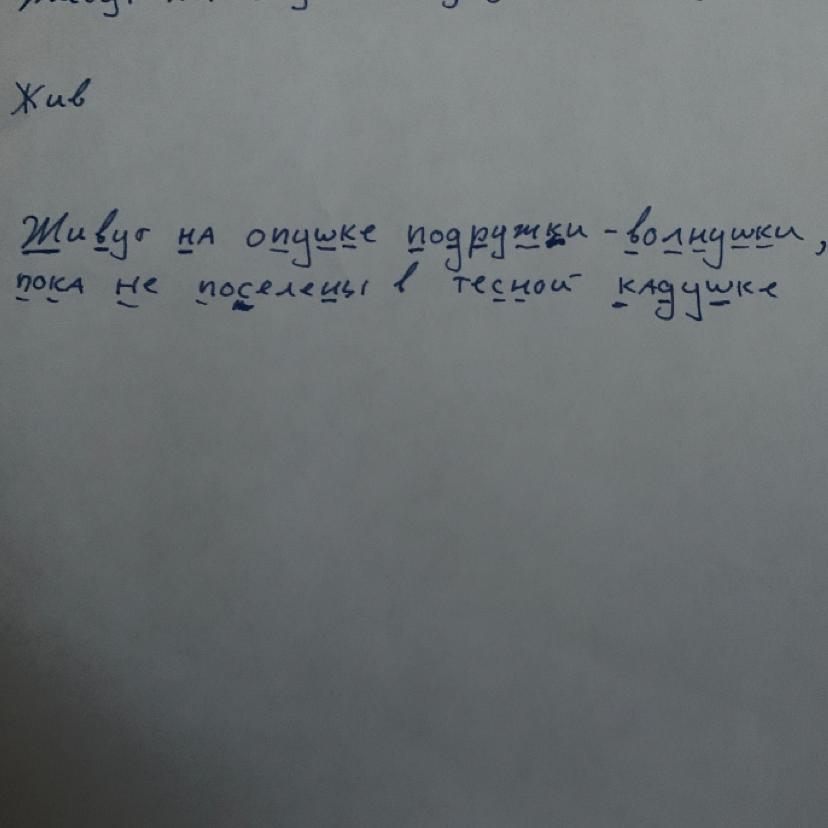 Жив
Живут на опушке подружки-волнушки,
пока не поселены в тесной кадушке